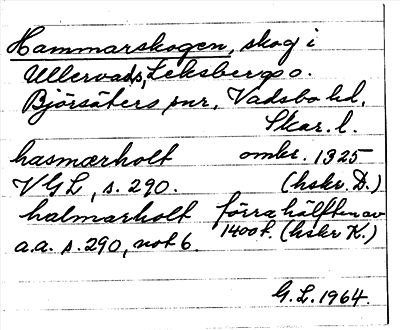 Hammarskogen, skog i
Ullervads, Leksbergs o.
Björsäters snr, Vadsbo hd,
Skar. l.
hasmærholt omkr. 1325
VGL, s. 290. (hskr. D.)
halmarholt förra hälften av
a.a. s. 290, not 6. 1400t. (hskr K.)
G.L. 1964.